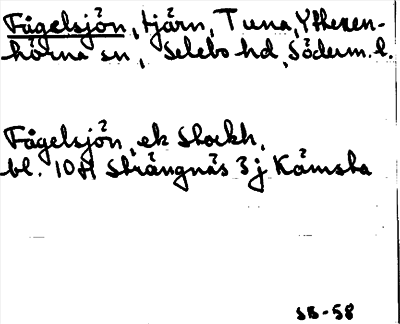 Fågelsjön, tjärn, Tuna, Ytteren-
hörna sn, Selebo hd, Söderm. l.
Fågelsjön, ek Stockh.
bl. 10H Strängnäs 3 j Kämsta
SB-58